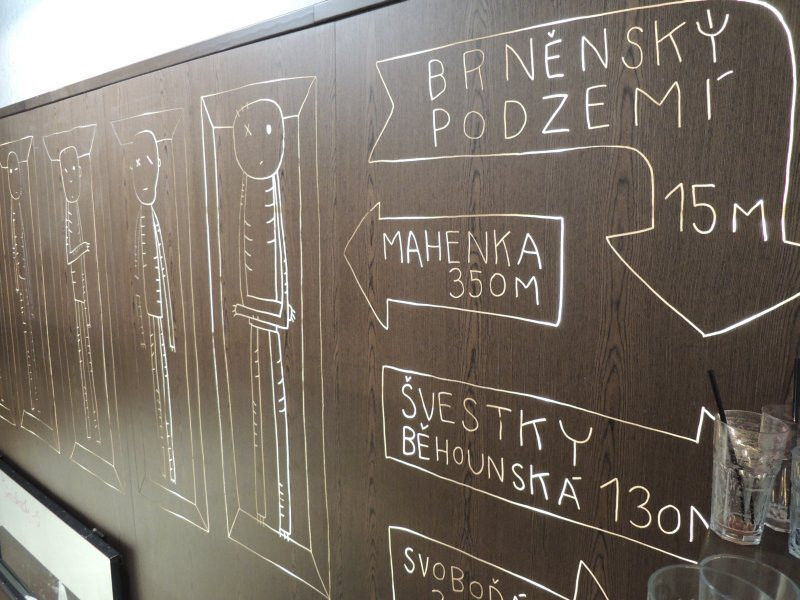 BRNĚNSKÝ
PODZEMÍ
15M
MAHENKA
350M
ŠVESTKY
BĚHOUNSKÁ 130M
SVOBOĎÁ